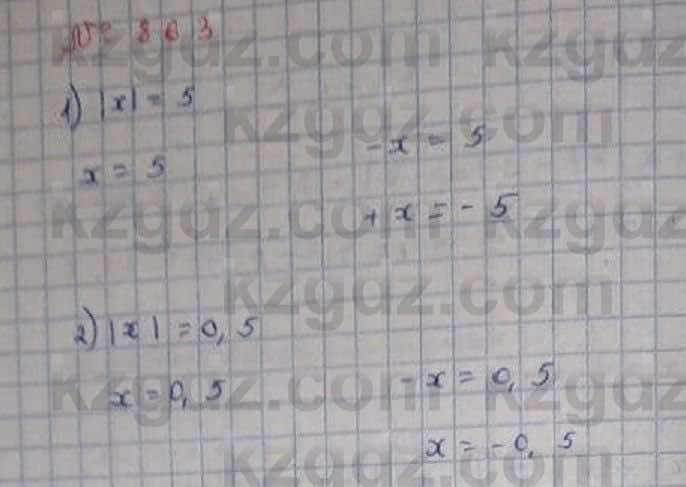 № 863
1) |x| = 5
x = 5
-x = 5
+ x = - 5
2) |x| = 0,5
x = 0,5
- x = 0,5
x = -0,5
kzgdz.com kzgdz.com
kzgdz.com
kzgdz.com kzgdz.com
kzgdz.com
kzgdz.com kzgdz.com
kzgdz.com